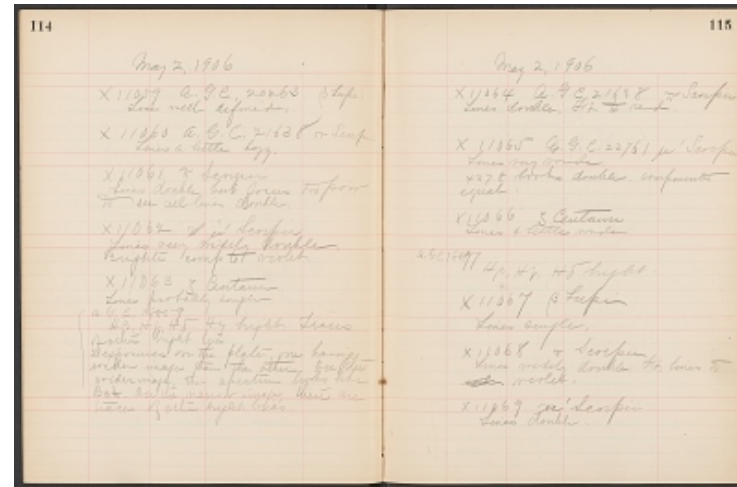 114
May 2, 1906
X 11059 A. G. C. 20263 β Lupi.
Lines well defined.
X 11060 A. G. C. 21638 Scorp
Lines a little hazy.
X 11061 Scorpii
Lines double but focus too poor
to see all lines double.
X 11062 μ' Scorpii
Lines very widely double.
Brighter comp. to violet.
X 11063 ζ Centauri
Lines probably single
A. G. C.
Hβ, Hγ, Hδ bright. Traces
other bright lines
on the plate, one having
wider images than the other.
wider image, the spectrum looks like
narrow image there are
traces of other bright lines
115
May 2, 1906
X 11064 A. G. C. 21638 Scorpii
Lines double. to red.
X 11065 A. G. C. 22761 μ' Scorpii
Lines very wide
4278 looks double. components
equal.
X 11066 ζ Centauri
Lines a little wide
A. G. C.
Hβ, Hγ, Hδ bright.
X 11067 β Lupi
Lines single.
X 11068 Scorpii
Lines widely double lines to
violet.
X 11069 μ' Scorpii
Lines double.